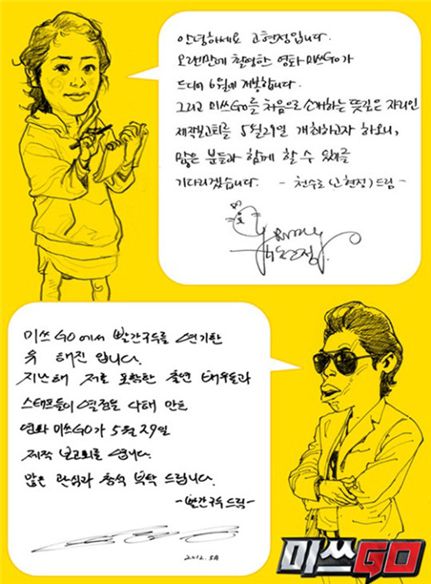 안녕하세요 고현정입니다.
오랜만에 촬영한 영화 미쓰GO가
드디어 6월에 개봉합니다.
그리고 미쓰GO를 처음으로 소개하는 뜻깊은 자리인
제작보고회를 5월29일 개최하고자 하오니,
많은 분들과 함께 할 수 있길
기다리겠습니다. - 천수로 (고현정) 드림 -
미쓰GO에서 빨간구두를 연기한
유 해진 입니다.
지난해 저를 포함한 출연 배우들과
스태프들이 열정을 다해 만든
영화 미쓰GO가 5월 29일
제작 보고회를 엽니다.
많은 관심과 참석 부탁 드립니다.
-빨간구두 드림-
2012. 5月
미쓰GO